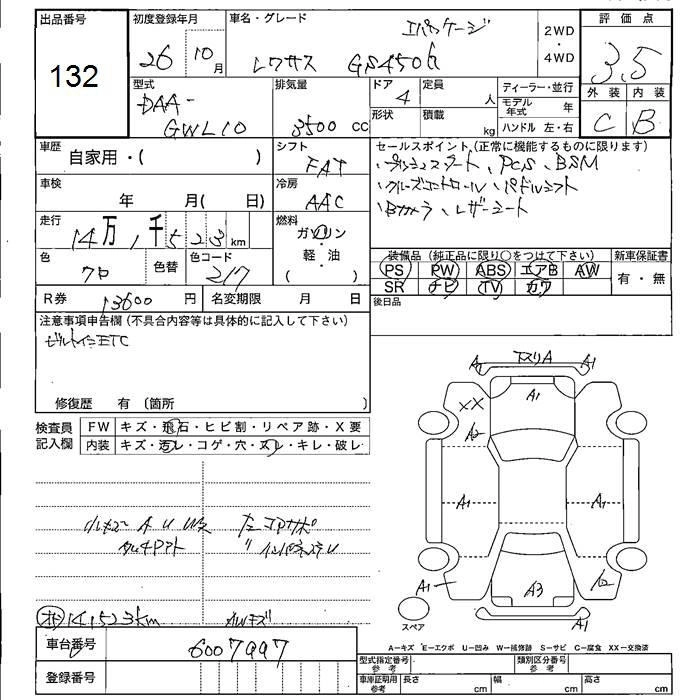 出品番号
132
初度登録年月
26 10 月
車名・グレード
Iパッケージ
レクサス GS450h
2WD
・
4WD
評価点
3.5
外装 内装
C B
型式
DAA-
GWL10
排気量
3500 cc
ドア
4
定員
人
形状
積載
kg
ディーラー・並行
モデル年式 年
ハンドル 左・右
車歴
自家用・( )
シフト
FAT
セールスポイント(正常に機能するものに限ります)
・プッシュスタート、PCS、BSM
・クルーズコントロール・パドルシフト
・Bカメラ、レザーシート
車検
年 月( 日)
冷房
AAC
走行
14万 1千523 km
燃料
ガソリン
・
軽・油
( )
色
クロ
色替
色コード
217
装備品(純正品に限り○をつけて下さい)
PS PW ABS エアB AW
SR ナビ TV カワ
新車保証書
有・無
後日品
R券 13600 円
名変期限 月 日
注意事項申告欄(不具合内容等は具体的に記入して下さい)
ビルトインETC
修復歴 有 (箇所 )
検査員
記入欄
FW キズ・飛石・ヒビ割・リペア跡・X要
内装 キズ・汚レ・コゲ・穴・スレ・キレ・破レ
小キズ A U W2
タッチアト
左コアサポ
〃インパネステ U
141523km
AWキズ
A1 下スリA A1
XX
A1
A2
A1
A1
A1
A3
A1
スペア
A−キズ E−エクボ U−凹み W−補修跡 S−サビ C−腐食 XX−交換済
車台番号
6007997
登録番号
型式指定番号
参考
類別区分番号
参考
車庫証明用
参考
長さ cm 幅 cm 高さ cm